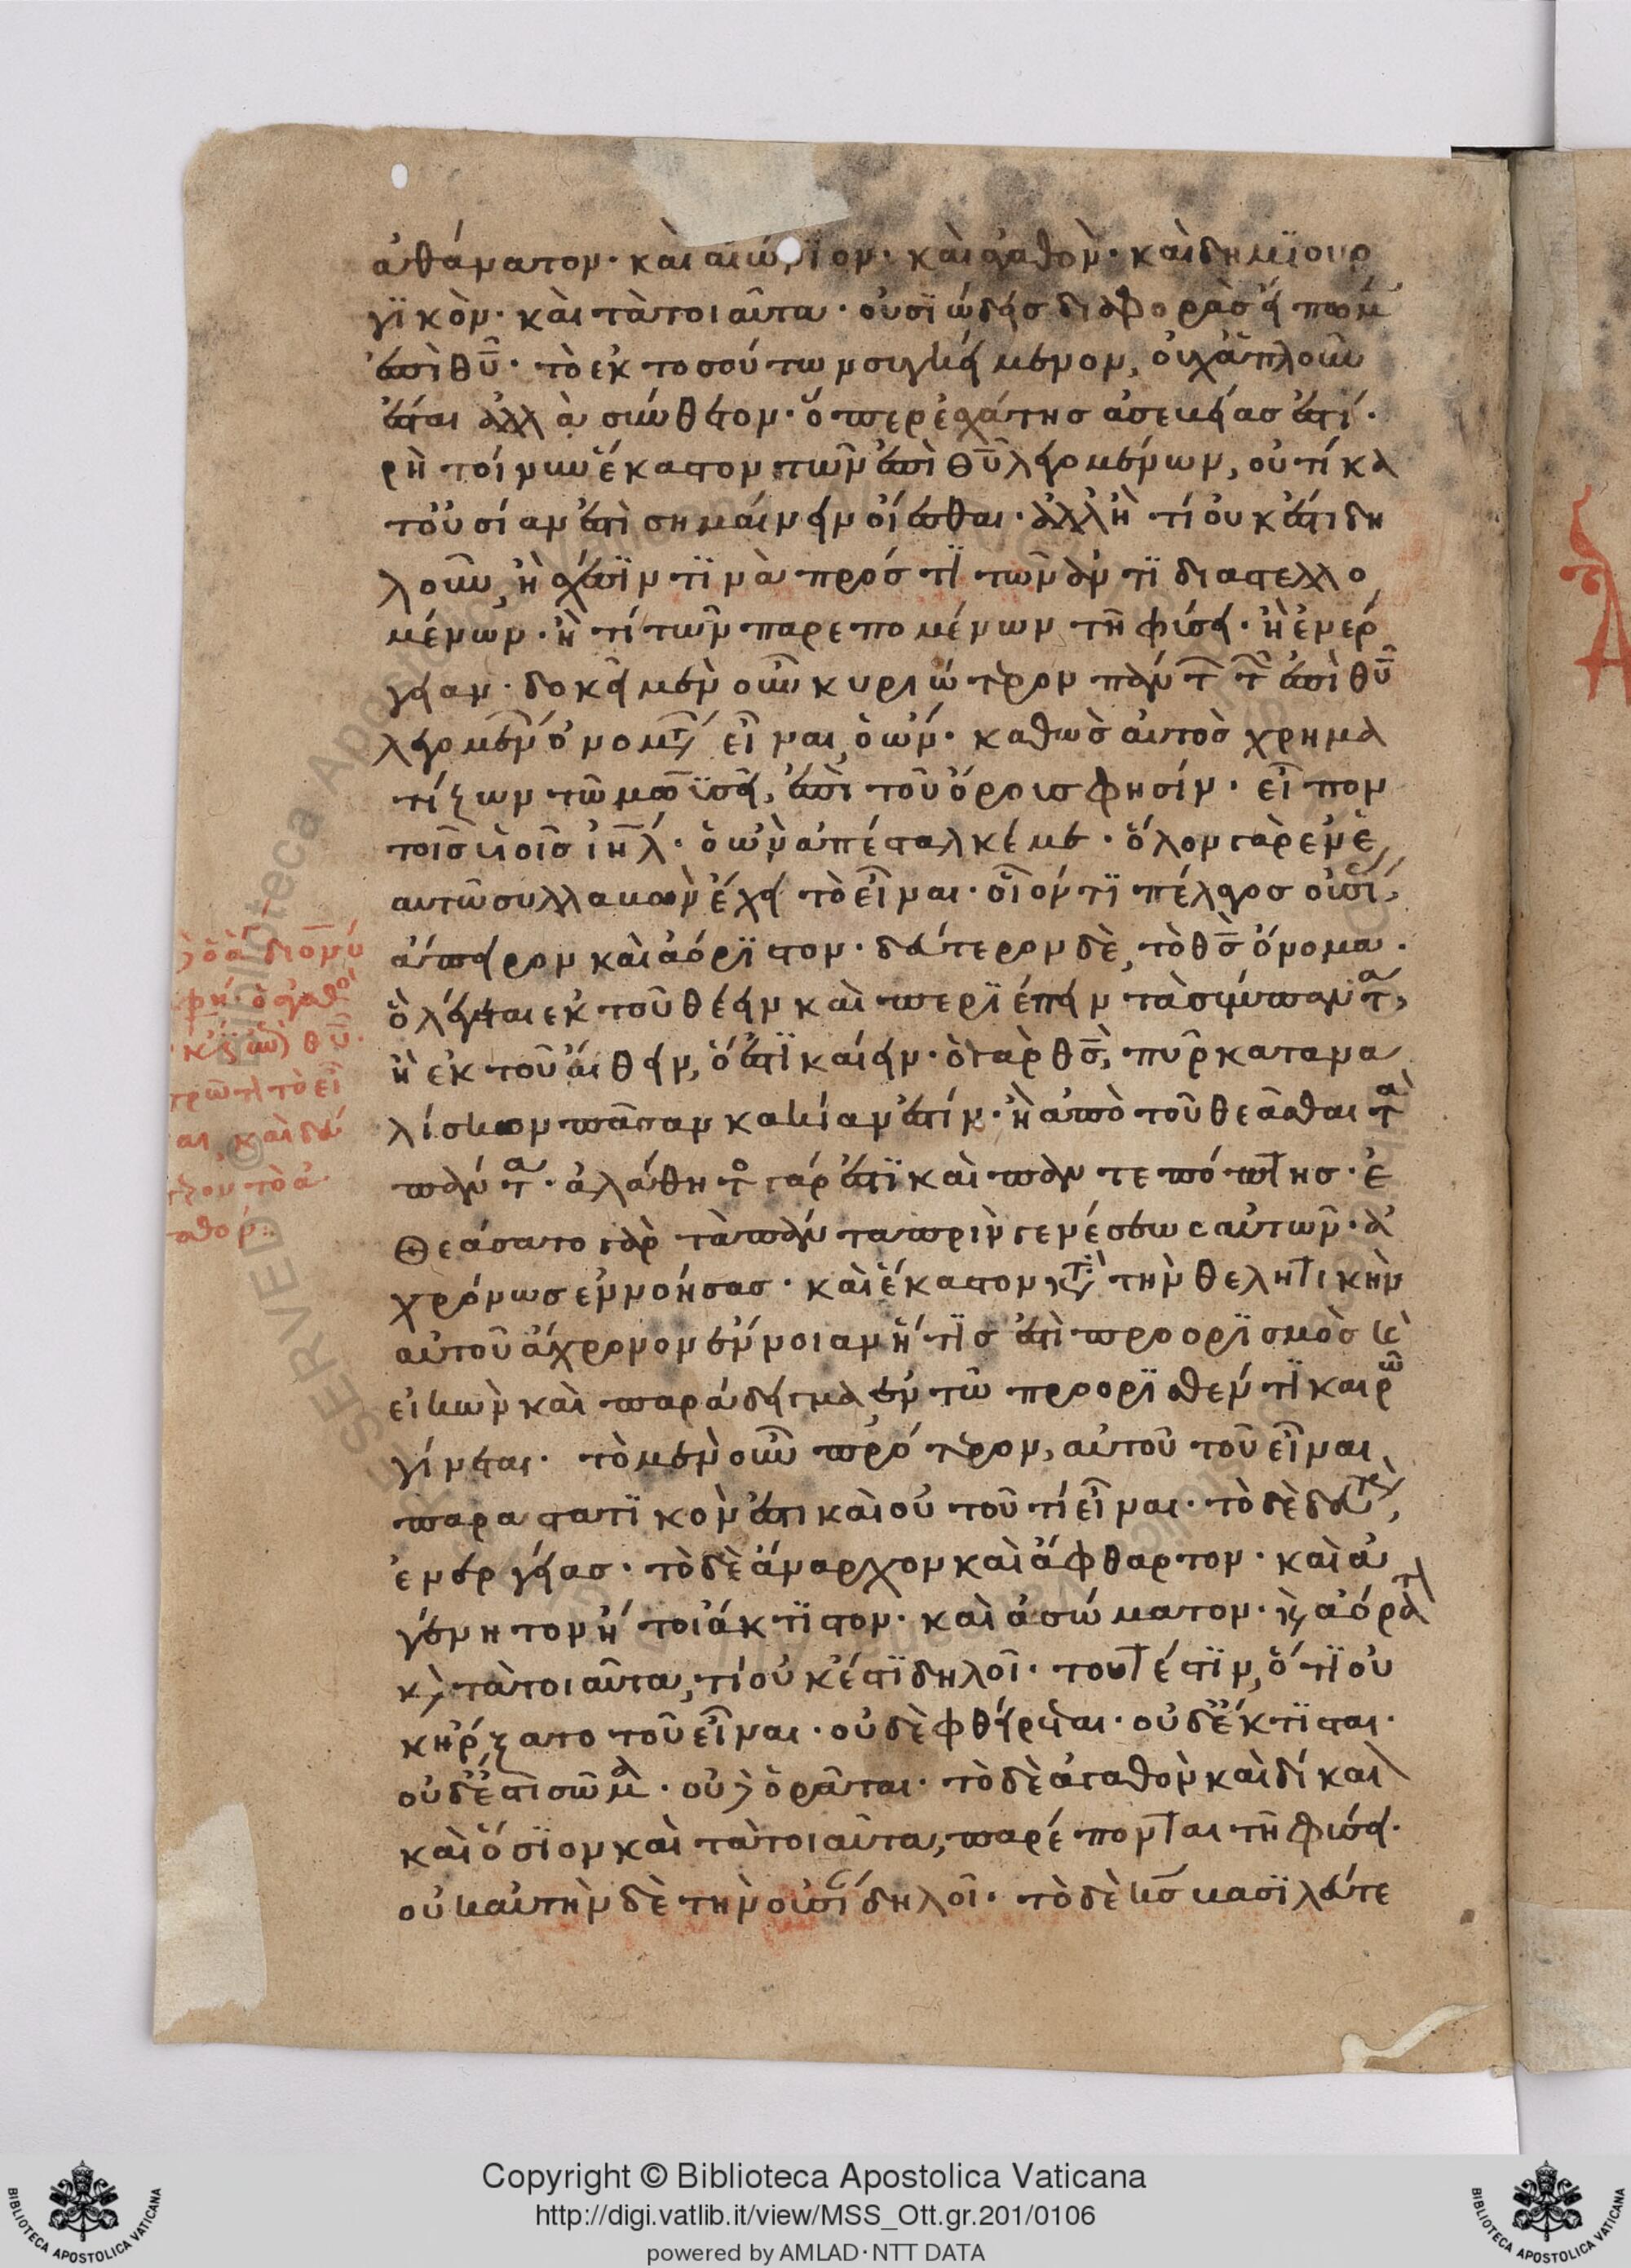 ἀθάνατον· καὶ αἰώνϊον· καὶ ἀγαθὸν· καὶ δημϊουρ
γϊκὸν· καὶ τὰ τοιαῦτα· οὐσϊώδεις διαφορὰς εἴποιμεν
ἐπὶ θῡ· τὸ ἐκ τοσούτων συγκείμενον, οὐχ ἁπλοῦν
ἔσται ἀλλὰ σύνθετον· ὅπερ ἐσχάτης ἀσεβείας ἐστί·
χρὴ τοίνυν ἕκαστον τῶν ἐπὶ θῡ λεγομένων, οὐ τί κα
τ' οὐσίαν ἐστὶ σημαίνειν οἴεσθαι· ἀλλ' ἢ τί οὐκ ἔστι δη
λοῦν, ἢ σχέσϊν τϊνὰ πρός τϊ τῶν ἀντϊδιαστελλο
μένων· ἢ τί τῶν παρεπομένων τῆ φύσει· ἢ ἐνέρ
γειαν· δοκεῖ μὲν οὖν κυριώτερον πάντ τ ἐπὶ θῡ
λεγομένων ὀνομάτ εἶναι ὁ ὤν· καθὼς αὐτὸς χρημα
τίζων τῶ μωϋσεῖ, ἐπὶ τοῦ ὄρους φησίν· εἶπον
τοῖς υἱοῖς ἰηλ· ὁ ὢν ἀπέσταλκέ με· ὅλον γὰρ ἐν ἑ
αυτῶ συλλαβὼν ἔχει τὸ εἶναι· οἷόν τϊ πέλαγος οὐσί,
ἄπειρον καὶ ἀόρϊστον· δεύτερον δὲ, τὸ θς ὄνομα·
ὃ λέγεται ἐκ τοῦ θέειν καὶ περϊέπειν τὰ σύμπαντα,
ἢ ἐκ τοῦ αἴθειν, ὅ ἐστϊ καίειν· ὁ γὰρ θς, πῦρ κατανα
λίσκον πᾶσαν κακίαν ἐστίν· ἢ ἀπὸ τοῦ θεᾶσθαι τὰ
πάντα· ἀλάθητος γάρ ἐστϊ καὶ πάντ' ἐπόπτης· ἐ
θεάσατο γὰρ τὰ πάντα πρὶν γενέσεως αὐτῶν· ἀ
χρόνως ἐννοήσας· καὶ ἕκαστον κατὰ τὴν θελητικὴν
αὐτοῦ ἄχρονον ἔννοιαν ἥτϊς ἐστὶ προορϊσμὸς κὲ
εἰκὼν καὶ παράδειγμα, ἐν τῶ προορϊσθέντϊ καιρῶ
γίνεται· τὸ μὲν οὖν πρότερον, αὐτοῦ τοῦ εἶναι,
παραστατϊκὸν ἐστι καὶ οὐ τοῦ τί εἶναι· τὸ δὲ δευτε,
ἐνεργείας· τὸ δὲ ἄναρχον καὶ ἄφθαρτον· καὶ ἀ
γένητον ἤτοι ἄκτϊστον· καὶ ἀσώματον· κ ἀόρατ
κ τὰ τοιαῦτα, τί οὐκ ἔστϊ δηλοῖ· τουτέστϊν, ὅτϊ οὐ
κ ἤρξατο τοῦ εἶναι· οὐδὲ φθείρεται· οὐδὲ ἔκτϊσται·
οὐδὲ ἐστὶ σῶμα· οὐδ ὁρᾶται· τὸ δὲ ἀγαθὸν καὶ δίκαι
καὶ ὅσϊον καὶ τὰ τοιαῦτα, παρέπονται τῆ φύσει·
οὐκ αὐτὴν δὲ τὴν οὐσί δηλοῖ· τὸ δὲ κς βασϊλεύ τε
διονύ
φη· ὁ ἀγαθο
θῡ·
πρῶτ τὸ εἶ
αι, καὶ δεύ
τερον τὸ ἀ
γαθόν:
Copyright © Biblioteca Apostolica Vaticana
http://digi.vatlib.it/view/MSS_Ott.gr.201/0106
powered by AMLAD·NTT DATA
BIBLIOTECA APOSTOLICA VATICANA
BIBLIOTECA APOSTOLICA VATICANA